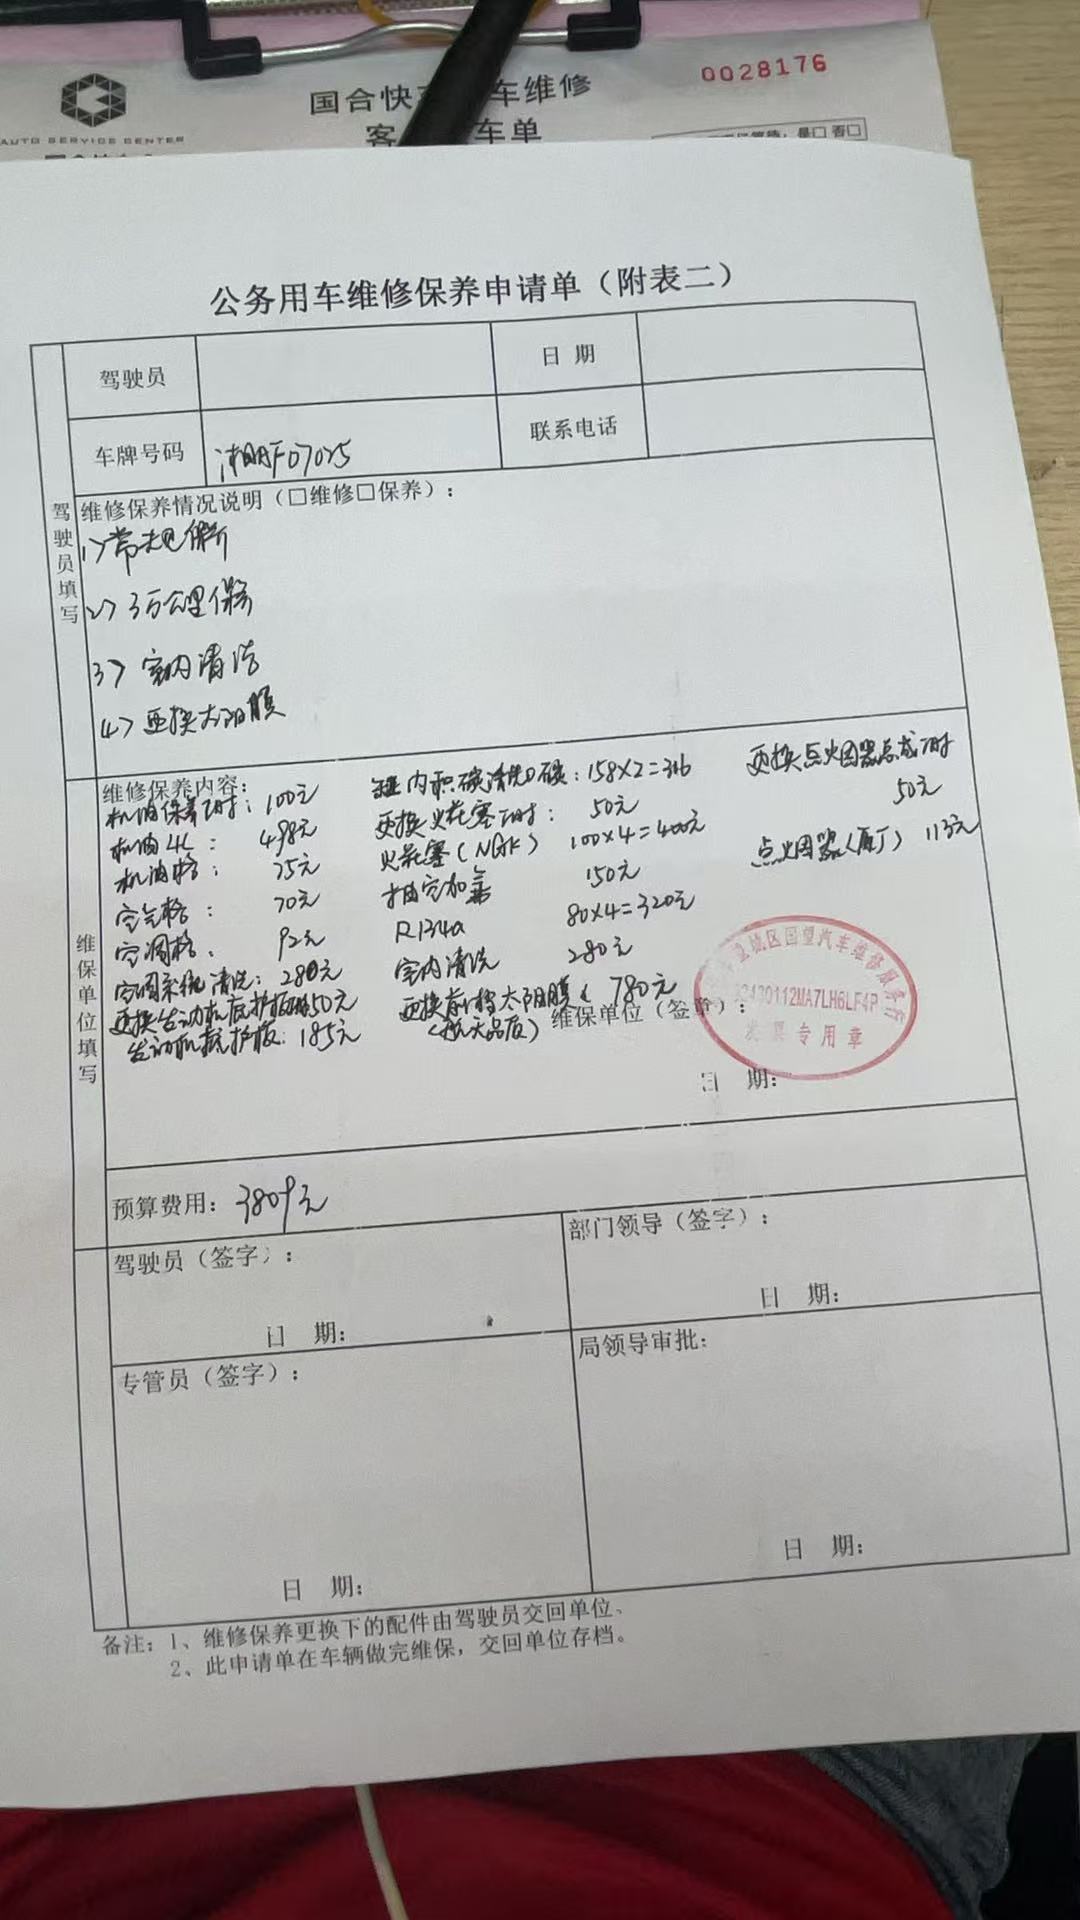 0028176
国合快 车维修
客 车单
是□ 否□
AUTO SERVICE CENTER
公务用车维修保养申请单（附表二）
驾驶员
日 期
车牌号码
联系电话
驾驶员填写
维修保养情况说明（□维修□保养）：
1> 常规保养
2> 3万公里保养
3> 室内清洁
4> 更换太阳膜
维保单位填写
维修保养内容：
机油保养工时：100元
机油4L：498元
机油格：75元
空气格：70元
空调格：92元
空调系统清洗：280元
更换发动机底护板工时50元
发动机底护板：185元
缸内积碳清洗 ：158X2=316
更换火花塞工时：50元
火花塞（NGK） 100X4=400元
抽空加氟 150元
R134a 80X4=320元
室内清洗 280元
更换前挡太阳膜 780元
（航天品质）
更换点烟器总成工时
50元
点烟器（原厂） 113元
维保单位（签章）：
区国望汽车维修服务行
430112MA7LH6LF4P
发票专用章
日 期：
预算费用：3809元
驾驶员（签字）：
日 期：
部门领导（签字）：
日 期：
专管员（签字）：
日 期：
局领导审批：
日 期：
备注：1、维修保养更换下的配件由驾驶员交回单位、
2、此申请单在车辆做完维保，交回单位存档。